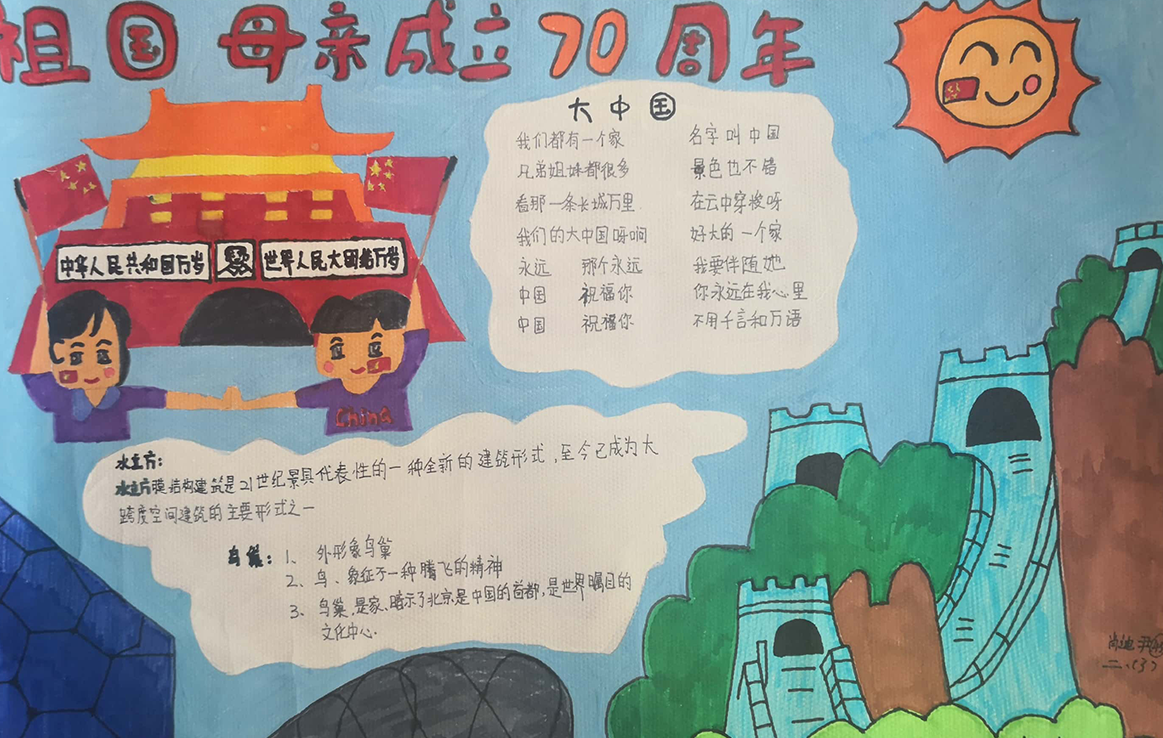 祖国母亲成立70周年
大中国
我们都有一个家 名字叫中国
兄弟姐妹都很多 景色也不错
看那一条长城万里 在云中穿梭呀
我们的大中国呀啊 好大的一个家
永远 那个永远 我要伴随她
中国 祝福你 你永远在我心里
中国 祝福你 不用千言和万语
中华人民共和国万岁
世界人民大团结万岁
China
水立方:
水立方膜结构建筑是21世纪景具代表性的一种全新的建筑形式,至今已成为大
跨度空间建筑的主要形式之一
鸟巢:
1、外形象鸟巢
2、鸟、象征于一种腾飞的精神
3、鸟巢,是家、暗示了北京是中国的首都,是世界瞩目的
文化中心.
二.(3)